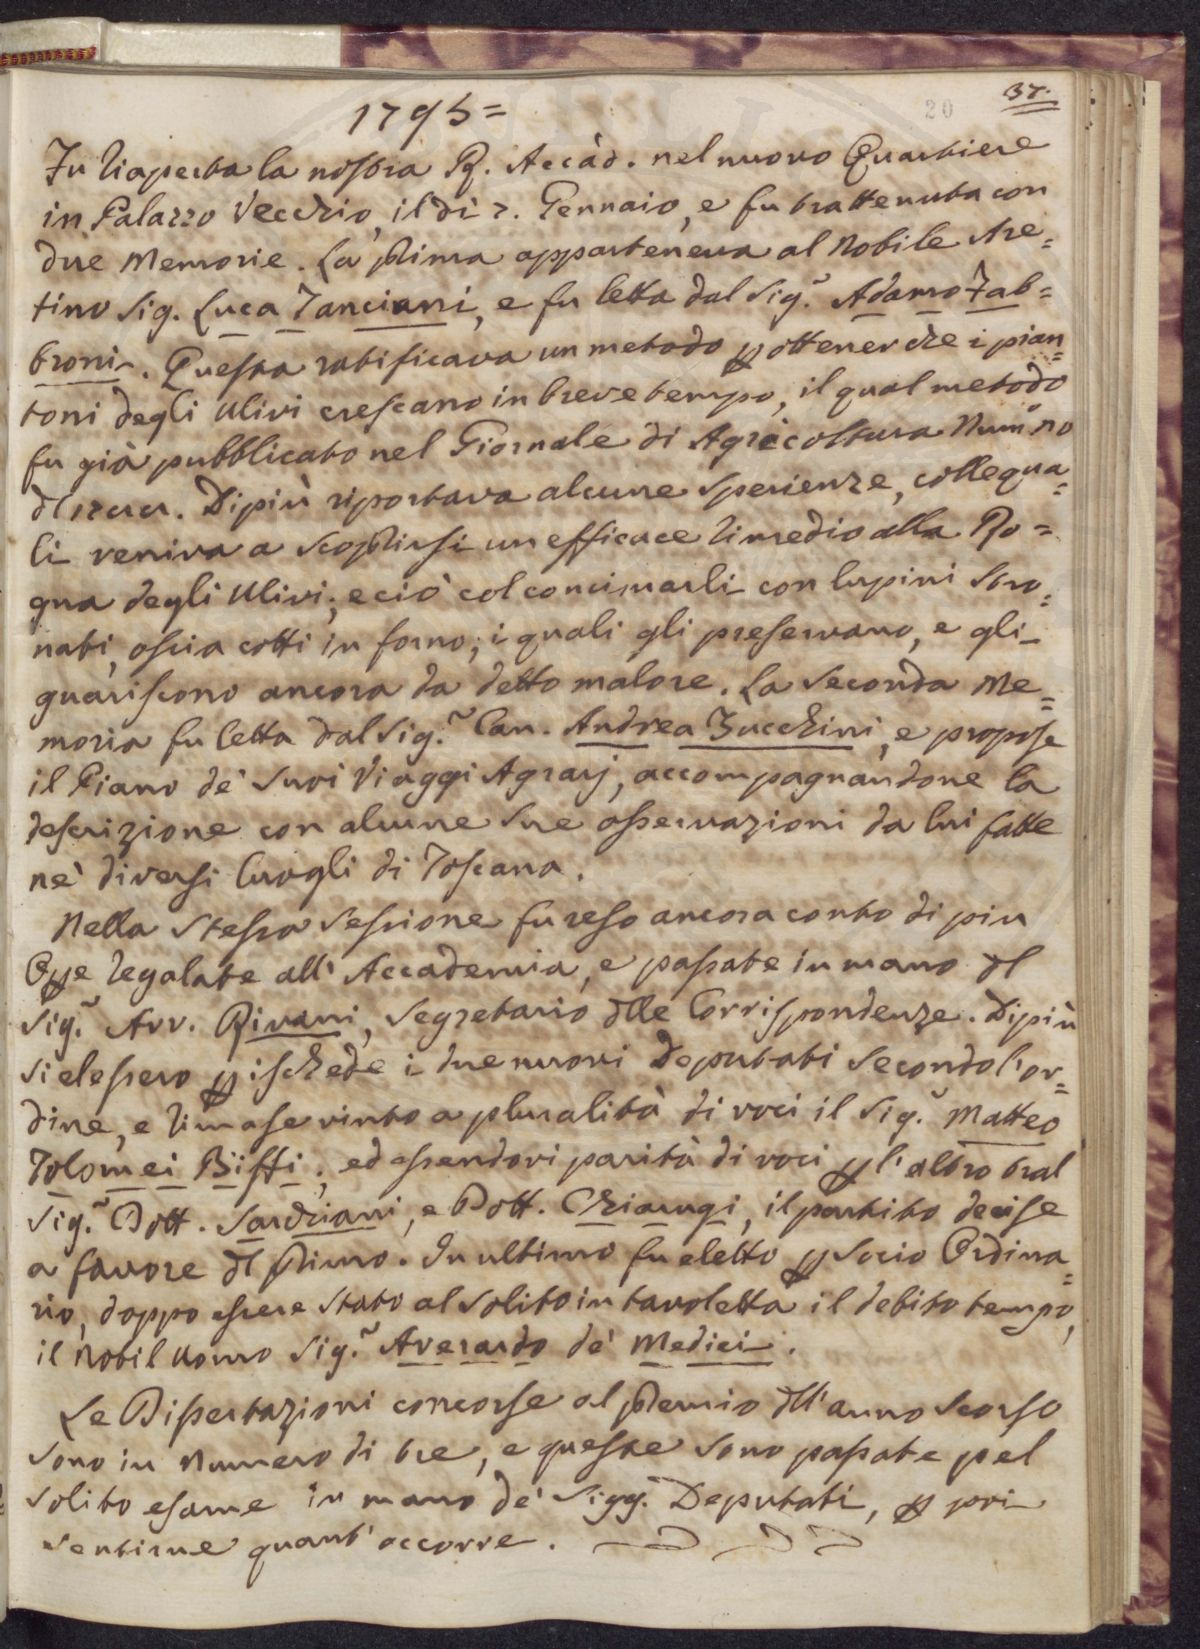 37.
20
1795=
Fu riaperta la nostra R. Accàd. nel nuovo Quartiere
in Palazzo Vecchio, il dì 7. Gennaio, e fu trattenuta con
due Memorie. La prima apparteneva al Nobile Are=
tino Sig. Luca Tanciani, e fu letta dal Sig.r Adamo Fab=
broni. Questa ratificava un metodo p ottener che i pian=
toni degli Ulivi crescano in breve tempo, il qual metodo
fu già pubblicato nel Giornale di Agricoltura Num.o 20
del. Dipiù riportava alcune sperienze, colle qua=
li veniva a scoprirsi un efficace rimedio alla Ro=
gna degli Ulivi; e ciò col concimarli con lupini stro=
nati, ossia cotti in forno; i quali gli preservano, e gli
guariscono ancora da detto malore. La seconda Me=
moria fu letta dal Sig.r Can. Andrea Zucchini, e propose
il Piano de' suoi Viaggi Agrarj, accompagnandone la
descrizione con alcune sue osservazioni da lui fatte
ne' diversi luoghi di Toscana.
Nella stessa sessione fu reso ancora conto di piu
Ope regalate all' Accademia, e passate in mano del
Sig.r Avv. Rivani, Segretario dlle Corrispondenze. Dipiù
si elessero p ischede i due nuovi Deputati secondo l'or=
dine, e rimase vinto a pluralità di voci il Sig.r Matteo
Tolomei Biffi; ed essendovi parità di voci p l'altro tral
Sig.r Dott. Sarchiani, e Dott. Chiarugi, il partito decise
a favore del primo. In ultimo fu eletto p Socio Ordina=
rio, doppo essere stato al solito in tavoletta il debito tempo,
il Nobil Uomo Sig.r Averardo de' Medici.
Le Dissertazioni concorse al premio dell'anno scorso
sono in numero di tre, e queste sono passate pel
solito esame in mano de' Sigg.ri Deputati, p poi
sentirne quant'occorre.